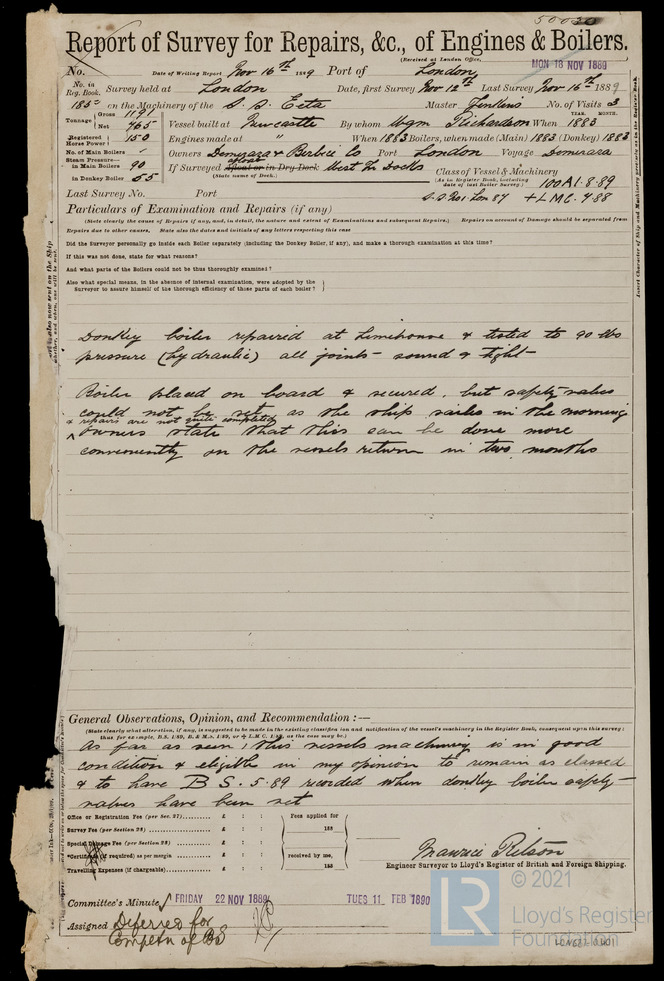 50030
Report of Survey for Repairs, &c., of Engines & Boilers.
(Received at London Office,
MON 18 NOV 1889
No. Date of Writing Report Nov 16th 1889 Port of London
No. in Reg. Book. Survey held at London Date, first Survey Nov 12th Last Survey Nov 16th 1889
185 on the Machinery of the S. S. Eeta Master Jenkins No. of Visits 3
Tonnage Gross 1191 Net 765
Vessel built at Newcastle By whom Wigm Richardson When 1883
YEAR. MONTH.
Registered Horse Power 150 Engines made at " When 1883 Boilers, when made (Main) 1883 (Donkey) 1883
No. of Main Boilers Owners Demerara & Berbice Co Port London Voyage Demerara
Steam Pressure— in Main Boilers 90 If Surveyed Afloat or in Dry Dock afloat West In Docks
(State name of Dock.)
in Donkey Boiler 55
Class of Vessel & Machinery
(As in Register Book, including date of last Boiler Survey.)
100A1. 8.89
S.S No1 Lon 87 + LMC. 9 88
Last Survey No. Port
Particulars of Examination and Repairs (if any)
(State clearly the cause of Repairs if any, and, in detail, the nature and extent of Examinations and subsequent Repairs.) Repairs on account of Damage should be separated from
Repairs due to other causes, State also the dates and initials of any letters respecting this case
Did the Surveyor personally go inside each Boiler separately (including the Donkey Boiler, if any), and make a thorough examination at this time?
If this was not done, state for what reasons?
And what parts of the Boilers could not be thus thoroughly examined?
Also what special means, in the absence of internal examination, were adopted by the
Surveyor to assure himself of the thorough efficiency of those parts of each boiler?
Donkey boiler repaired at Limehouse & tested to 90 lbs
pressure (hydraulic) all joints - sound & tight -
Boiler placed on board & secured, but safety valves
could not be set as the ship sailes in the morning
& repairs are not quite completed
owners state that this can be done more
conveniently on the vessels return in two months
General Observations, Opinion, and Recommendation :—
(State clearly what alteration, if any, is suggested to be made in the existing classification and notification of the vessel's machinery in the Register Book, consequent upon this survey;
thus for example, B.S. 1/89, B.& M.S. 1/89, or L.M.C. 1/89, as the case may be.)
As far as seen, this vessels machinery is in good
condition & eligible in my opinion to remain as classed
& to have B S. 5.89 recorded when donkey boiler safety -
valves have been set
Office or Registration Fee (per Sec. 27) £ : : Fees applied for
Survey Fee (per Section 28) £ : : 188
Special Damage Fee (per Section 28) £ : :
*Certificate (if required) as per margin £ : : received by me,
Travelling Expenses (if chargeable) £ : : 188
Engineer Surveyor to Lloyd's Register of British and Foreign Shipping.
Committee's Minute FRIDAY 22 NOV 1889 TUES 11 FEB 1890
Assigned Deferred for
Completn of BS
© 2021
LR
Lloyd's Register
Foundation